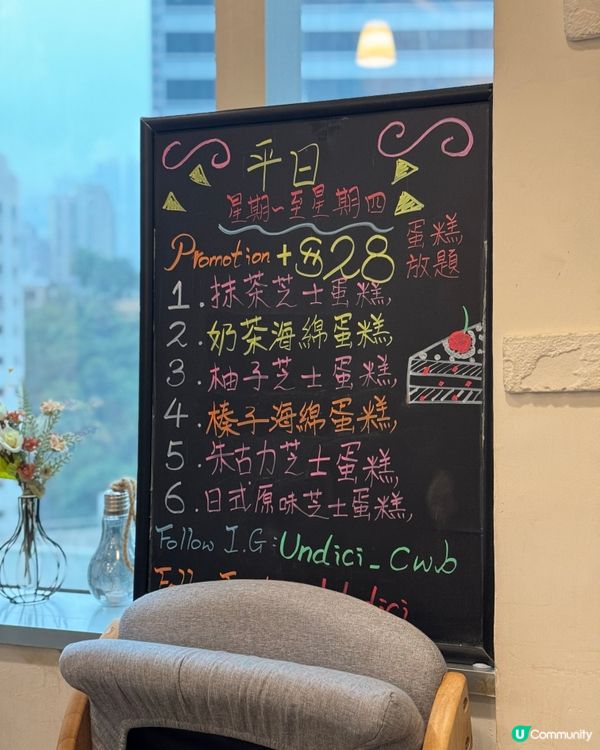 平日
星期一至星期四
Promotion + $28 蛋糕放題
1. 抹茶芝士蛋糕,
2. 奶茶海綿蛋糕,
3. 柚子芝士蛋糕,
4. 榛子海綿蛋糕,
5. 朱古力芝士蛋糕,
6. 日式原味芝士蛋糕,
Follow I.G: Undici_cwb
U Community